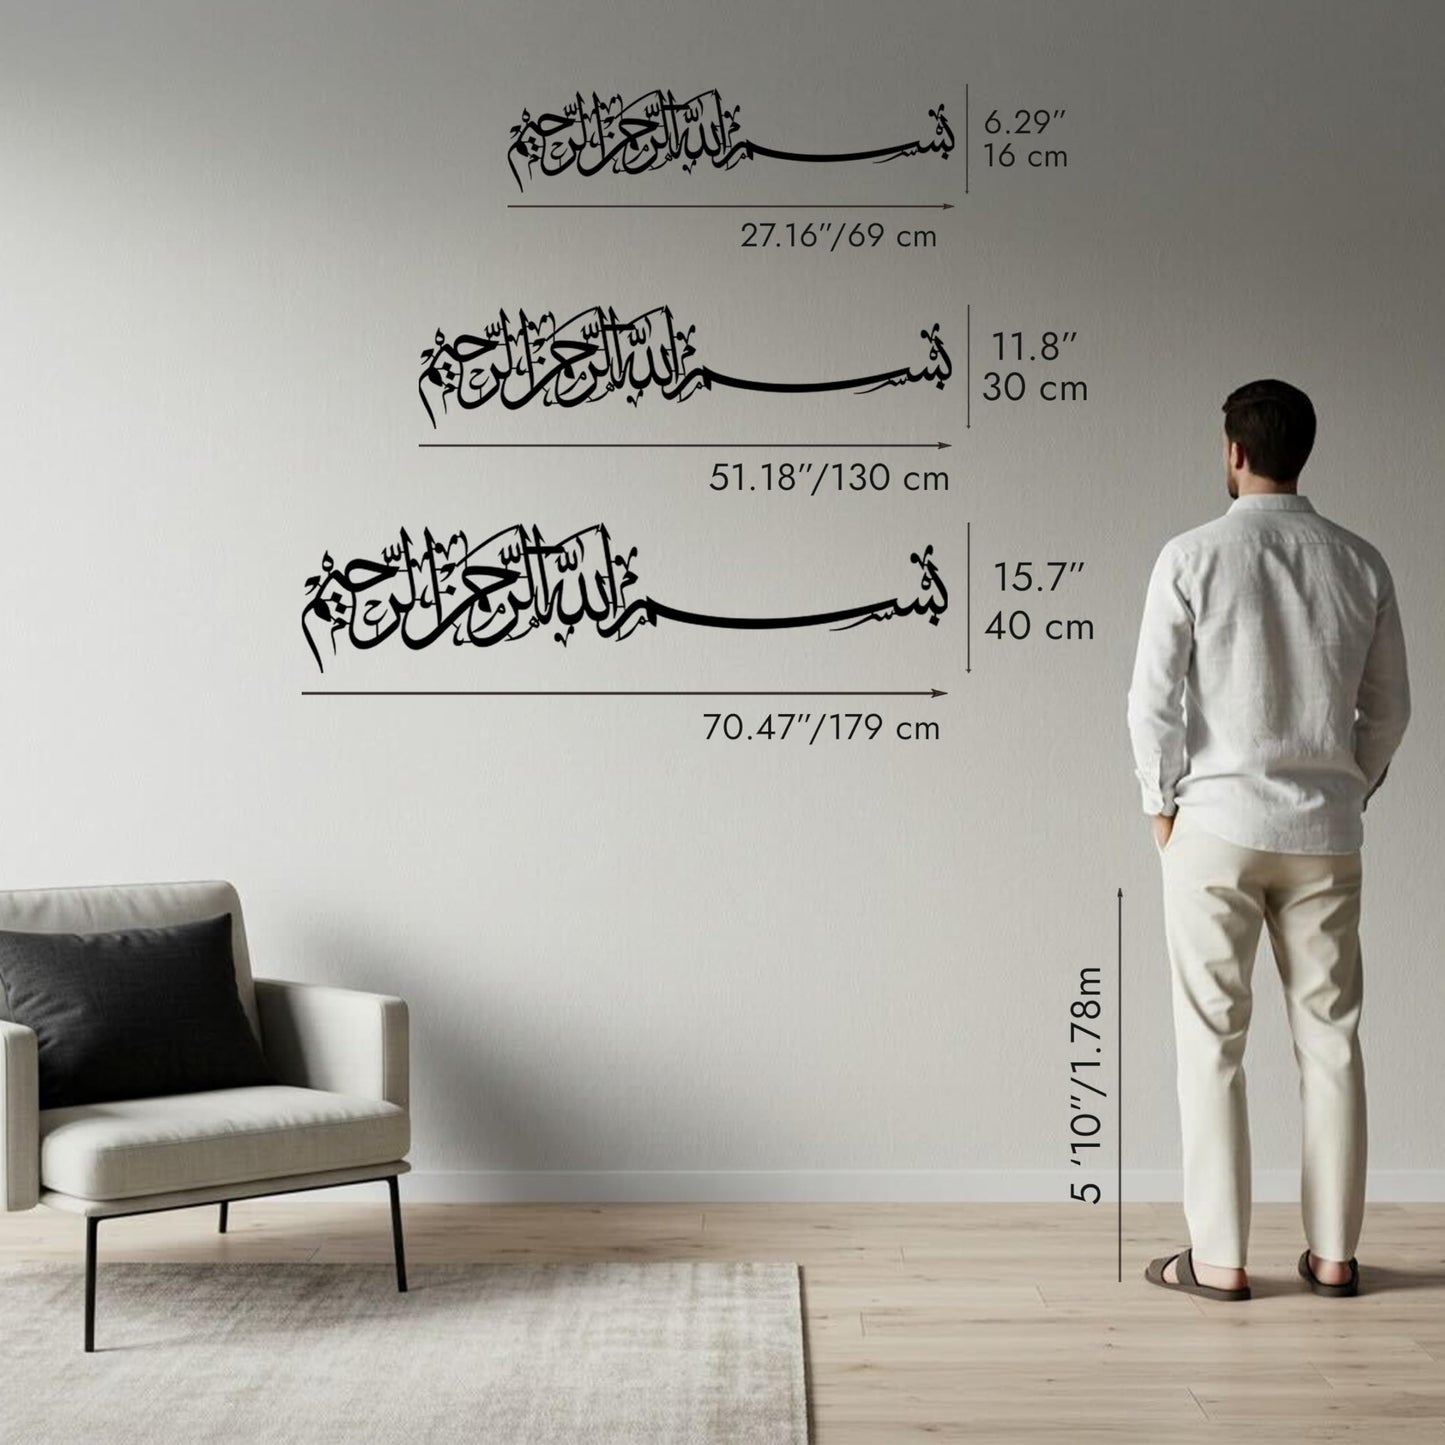 بسم الله الرحمن الرحيم
6.29”
16 cm
27.16”/69 cm
بسم الله الرحمن الرحيم
11.8”
30 cm
51.18”/130 cm
بسم الله الرحمن الرحيم
15.7”
40 cm
70.47”/179 cm
5 ‘10”/1.78m